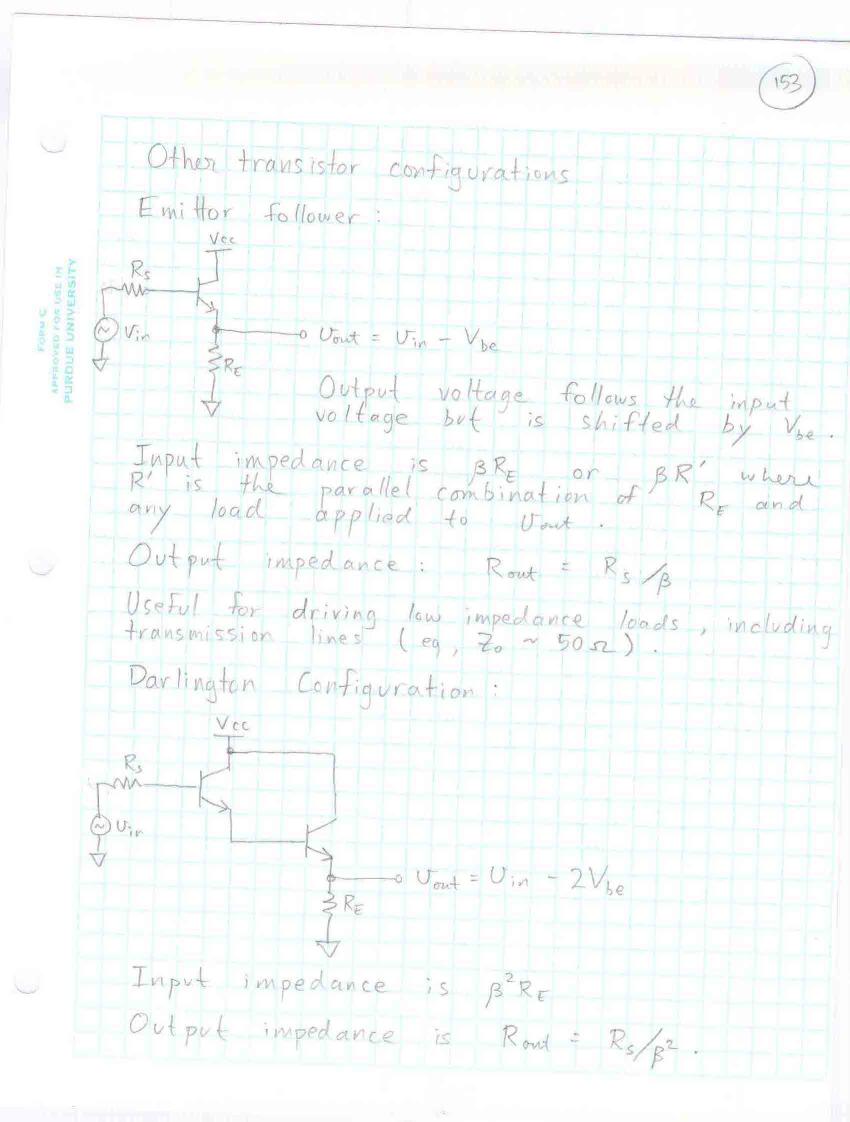 153
Other transistor configurations
Emittor follower :
Vcc
Rs
Vin
RE
Vout = Vin - Vbe
Output voltage follows the input
voltage but is shifted by Vbe .
Input impedance is βRE or βR' where
R' is the parallel combination of RE and
any load applied to Vout .
Output impedance : Rout = Rs/β
Useful for driving low impedance loads, including
transmission lines (eg, Zo ~ 50Ω).
Darlington Configuration :
Vcc
Rs
Vin
Vout = Vin - 2Vbe
RE
Input impedance is β²RE
Output impedance is Rout = Rs/β² .
FORM C
APPROVED FOR USE IN
PURDUE UNIVERSITY